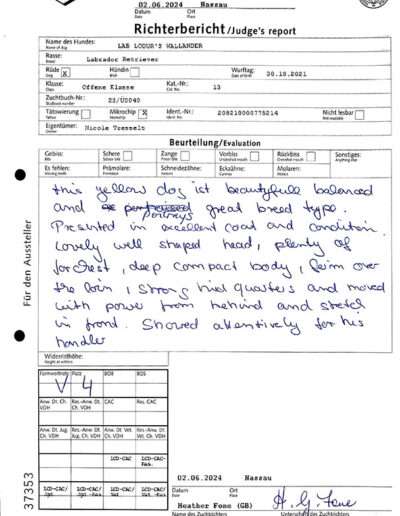 02.06.2024 Nassau
Datum Ort
Date Place
Richterbericht/Judge's report
Name des Hundes: LAB LCDUR'S WALLANDER
Name of dog
Rasse: Labrador Retriever
Breed
Rüde X Hündin Wurftag: 30.10.2021
Dog Bitch Date of birth
Klasse: Offene Klasse Kat.-Nr.: 13
Class Cat. No.
Zuchtbuch-Nr.:
Studbook number
Tätowierung Mikrochip X Ident.-Nr.: Nicht lesbar
Tattoo Microchip Ident. No. Not readable
Eigentümer: Nicole Tresselt
Owner
Beurteilung/Evaluation
Gebiss: Schere Zange Vorbiss Rückbiss Sonstiges:
Bite Scissor bite Pincer bite Undershot mouth Overshot mouth Anything else
Es fehlen: Prämolare: Schneidezähne: Eckzähne: Molaren:
Missing teeth Premolars Incisors Canines Molars
this yellow dog ist beautifull balanced
and portreys great breed type.
Presented in excellent coat and condition.
Lovely well shaped head, plenty of
forchest, deep compact body, firm over
the loin, strong hind quarters and moved
with power from behind and stretch
in front. Showed attentively for his
handler
Für den Aussteller
Widerristhöhe:
Height at withers
Formwertnote Platz BOB BOS
V 4
Anw. Dt. Ch. VDH Res.-Anw. Dt. Ch. VDH CAC Res. CAC
Anw. Dt. Jug. Ch. VDH Res.-Anw. Dt. Jug. Ch. VDH Anw. Dt. Vet. Ch. VDH Res.-Anw. Dt. Vet. Ch. VDH
LCD-CAC LCD-CAC-Res.
LCD-CAC/ LCD-CAC/ LCD-CAC/ LCD-CAC/
37353
02.06.2024 Nassau
Datum Ort
Date Place
Heather Fone (GB) H. G. Fone
Name des Zuchtrichters Unterschrift des Zuchtrichters